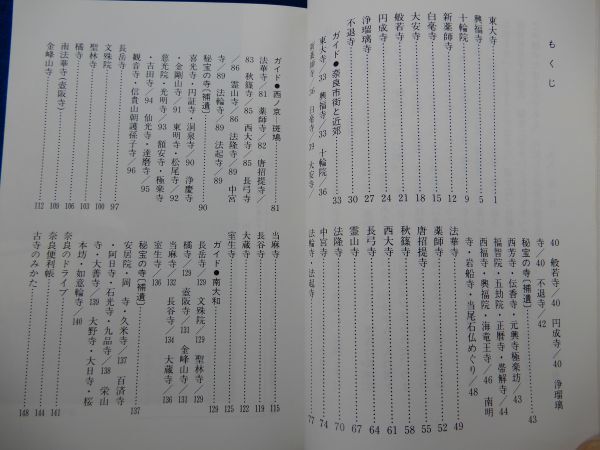 もくじ
東大寺……1
興福寺……5
十輪院……9
新薬師寺……12
白毫寺……15
大安寺……18
般若寺……21
円成寺……24
浄瑠璃寺……27
不退寺……30
ガイド●奈良市街と近郊……33
東大寺/33 興福寺/33 十輪院/36
40 般若寺/40 円成寺/40 浄瑠璃
寺/40 不退寺/42
秘宝の寺〔補遺〕……43
西芳寺・伝香寺・元興寺極楽坊/43
福智院・五劫院・正暦寺・帯解寺/44
西福寺・興福院・海竜王寺/46 南明
寺・岩船寺・当尾石仏めぐり/48
法華寺……49
薬師寺……52
唐招提寺……55
秋篠寺……58
西大寺……61
長弓寺……64
霊山寺……67
法隆寺……70
中宮寺……74
法輪寺・法起寺……77
ガイド●西ノ京―斑鳩……81
法華寺/81 薬師寺/82 唐招提寺/
83 秋篠寺/85 西大寺/85 長弓寺
/86 霊山寺/86 法隆寺/89 中宮
寺/89 法輪寺/89 法起寺/89
秘宝の寺〔補遺〕……90
喜光寺・円証寺・洞泉寺/90 浄慶寺
・金剛山寺/91 東明寺・松尾寺/92
慈光院・光明寺/93 額安寺・極楽寺
・吉田寺/94 仙光寺・達磨寺/95
観音寺・信貴山朝護孫子寺/96
長岳寺……97
文殊院……100
聖林寺……103
橘寺……106
南法華寺(壺阪寺)……109
金峰山寺……112
当麻寺……115
長谷寺……119
大蔵寺……122
室生寺……125
ガイド●南大和……129
長岳寺/129 文殊院/129 聖林寺/
橘寺/129 壺阪寺/131 金峰山寺/
当麻寺/132 長谷寺/134 大蔵寺/
室生寺/136
秘宝の寺〔補遺〕……137
安居院・岡寺・久米寺/137 百済寺
・阿日寺・石光寺・九品寺/138 栄山
寺・大善寺/139 大野寺・大日寺・桜
本坊・如意輪寺/140
奈良のドライブ……141
奈良便利帳……144
古寺のみかた……148